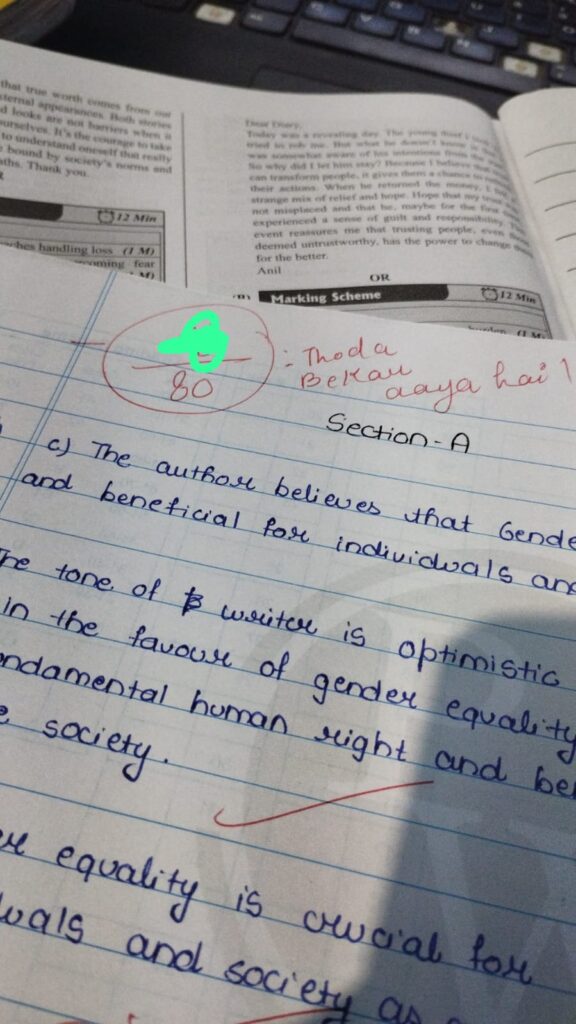 that true worth comes from our
ternal appearances. Both stories
d looks are not barriers when it
urselves. It's the courage to take
to understand oneself that really
bound by society's norms and
ths. Thank you.
12 Min
ches handling loss (1 M)
coming fear
M)
Dear Diary,
Today was a revealing day. The young thief I
tried to rob me. But what he doesn't know is
was somewhat aware of his intentions from the
So why did I let him stay? Because I believe
can transform people, it gives them a chance to
their actions. When he returned the money, I
strange mix of relief and hope. Hope that my
not misplaced and that he, maybe for the first
experienced a sense of guilt and responsibility.
event reassures me that trusting people, even
deemed untrustworthy, has the power to change
for the better.
Anil
OR
Marking Scheme
12 Min
80
: Thoda
Bekau
aaya hai !
Section-A
c) The author believes that Gende
and beneficial for individuals and
The tone of writer is optimistic
in the favour of gender equality
ndamental human right and be
e society.
equality is crucial for
duals and society as